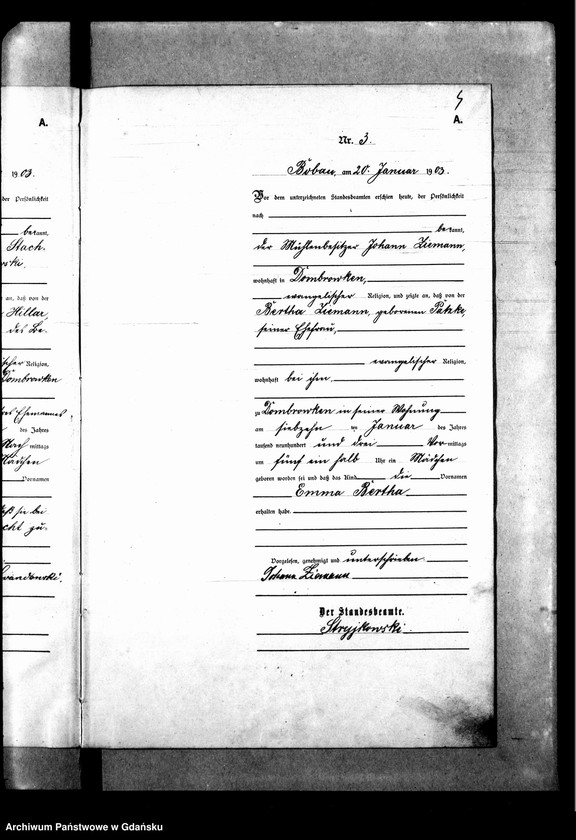 A.
1903.
der Persönlichkeit
bekannt,
Stach.
an, daß von der
Hillar,
des Be.
Religion,
Dombrowken
Ehemannes
des Jahres
Nach mittags
Mädchen
Vornamen
bei
5
A.
Nr. 3.
Bobau, am 20. Januar 1903.
Vor dem unterzeichneten Standesbeamten erschien heute, der Persönlichkeit
nach
bekannt,
der Mühlenbesitzer Johann Ziemann,
wohnhaft in Dombrowken,
evangelischer Religion, und zeigte an, daß von der
Bertha Ziemann, geborenen Patzke,
seiner Ehefrau,
evangelischer Religion,
wohnhaft bei ihm,
zu Dombrowken in seiner Wohnung
am siebzehn ten Januar des Jahres
tausend neunhundert und drei Vor mittags
um fünf ein halb Uhr ein Mädchen
geboren worden sei und daß das Kind die Vornamen
Emma Bertha
erhalten habe.
Vorgelesen, genehmigt und unterschrieben
Johann Ziemann
Der Standesbeamte.
Stryjkowski.
Archiwum Państwowe w Gdańsku